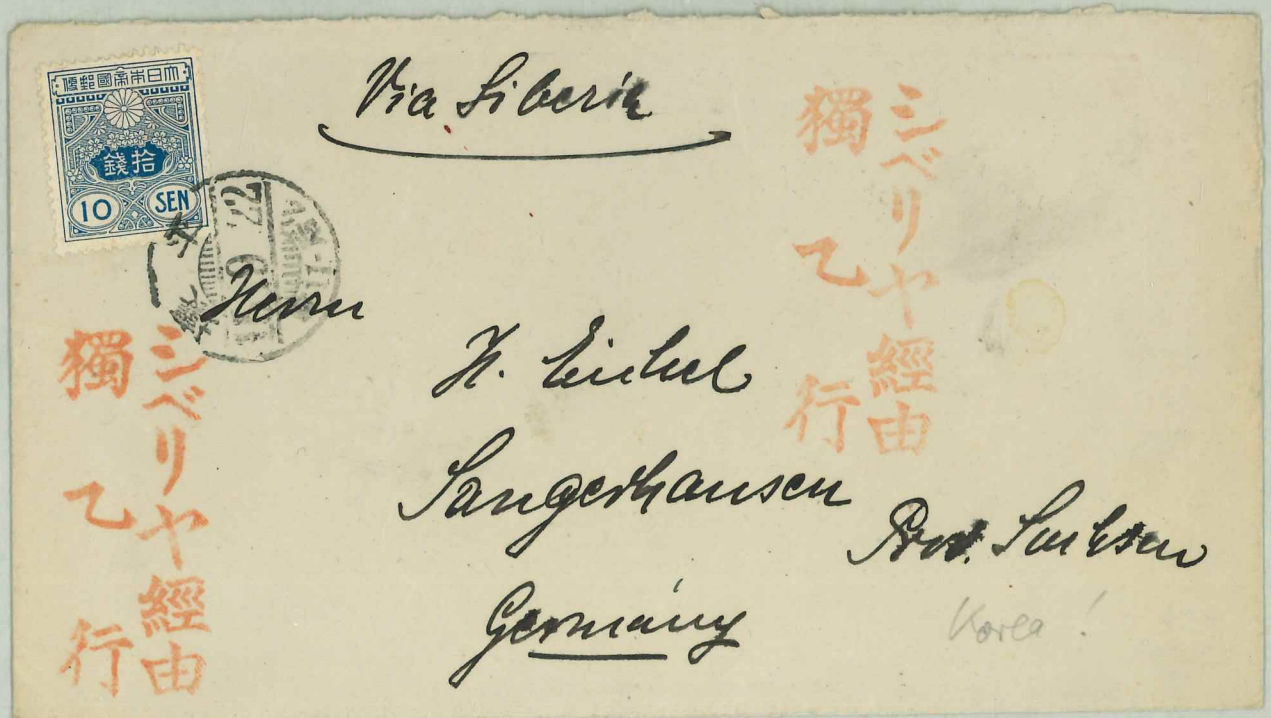 大日本帝國郵便
拾錢
10 SEN
Via Siberia
シベリヤ經由
獨乙行
22
9
Herrn
H. Eichel
Sangerhausen
Prov. Sachsen
Germany
シベリヤ經由
獨乙行
Korea!